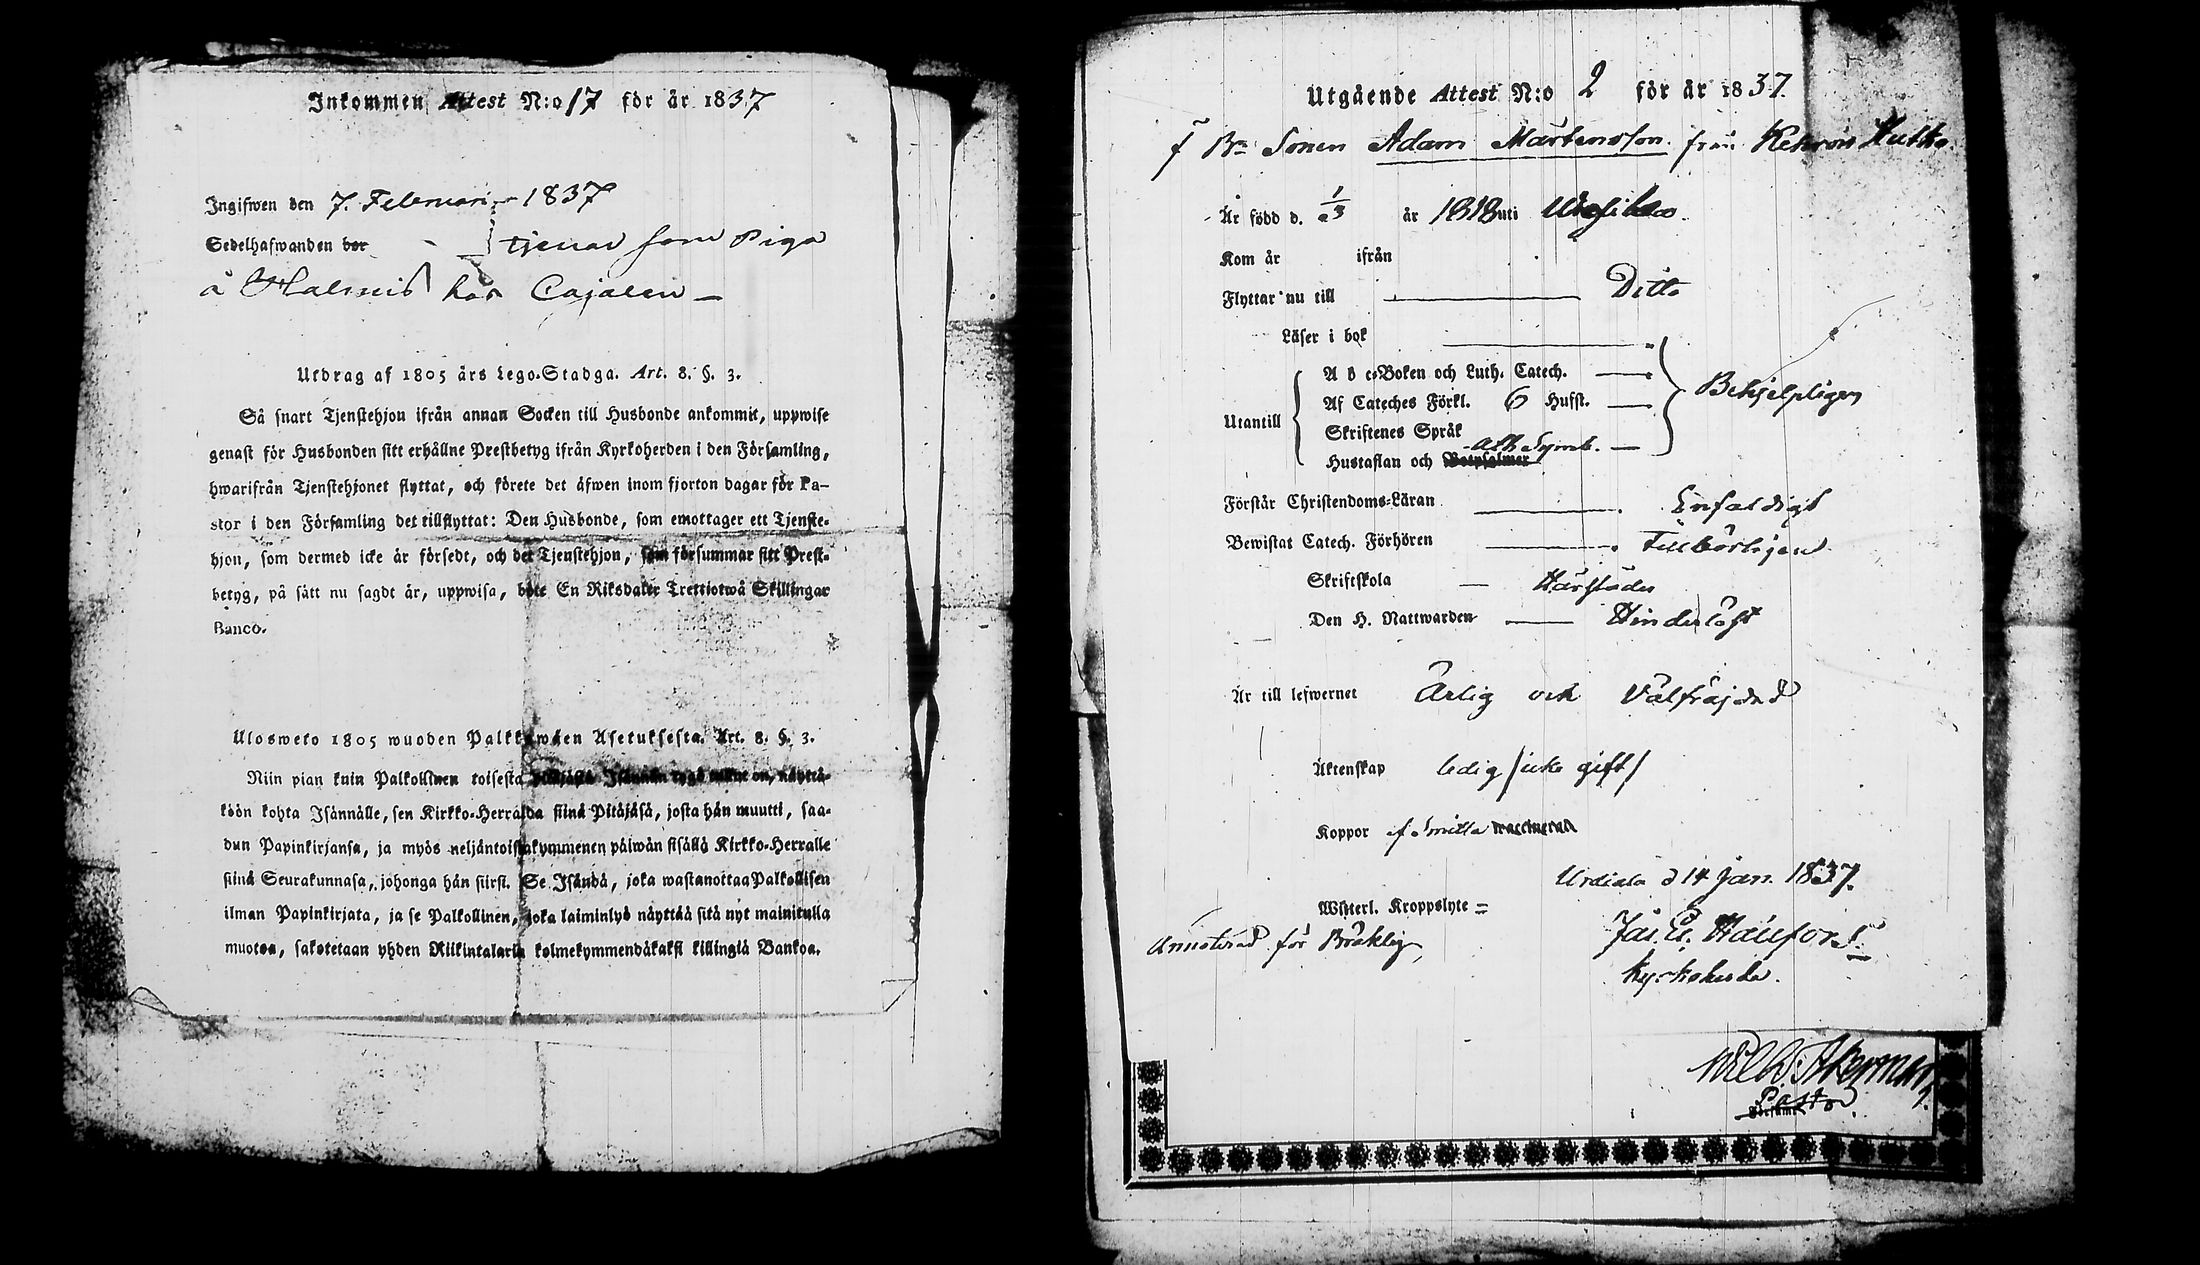 Inkommen Attest N:o 17 för år 1837
Ingifwen den 7. Februari 1837
Sedelhafwanden bor tjenar som Piga
å hos Cajalen
Utdrag af 1805 års Lego-Stadga. Art. 8. §. 3.
Så snart Tjenstehjon ifrån annan Socken till Husbonde ankommit, uppwise
genast för Husbonden sitt erhållne Prestbetyg ifrån Kyrkoherden i den Församling,
hwarifrån Tjenstehjonet flyttat, och förete det äfwen inom fjorton dagar för Pa-
stor i den Församling det tillflyttat: Den Husbonde, som emottager ett Tjenste-
hjon, som dermed icke är försedt, och det Tjenstehjon, som försummar sitt Prest-
betyg, på sätt nu sagdt är, uppwisa, böte En Riksdaler Trettiotwå Skillingar
Banco.
Ulosweto 1805 wuoden Palkkawäen Asetuksesta. Art. 8. §. 3.
Niin pian kuin Palkollinen toisesta Isännän tygö tullut on, näyttä-
köön kohta Isännälle, sen Kirkko-Herralda siinä Pitäjäsä, josta hän muutti, saa-
dun Papinkirjansa, ja myös neljäntoistakymmenen päiwän sisällä Kirkko-Herralle
siinä Seurakunnasa, johonga hän siirsi. Se Isändä, joka wastanottaa Palkollisen
ilman Papinkirjata, ja se Palkollinen, joka laiminlyö näyttää sitä nyt mainitulla
muotoa, sakotetaan yhden Riikintalarin kolmekymmendäkaksi killingiä Bankoa.
Utgående Attest N:o 2 för år 1837.
Sonen Adam Mårtensson från
Är född d. 1/3 år 1818 uti
Kom år ifrån
Flyttar nu till Ditto
Läser i bok
A b c-Boken och Luth. Catech.
Af Cateches Förkl. 6 Hufst. Behjelpligen
Utantill
Skriftenes Språk
Ath Symb.
Hustaflan och Botpsalmer
Förstår Christendoms-Läran Enfaldigt
Bewistat Catech. Förhören Tillbörligen
Skriftskola Härstädes
Den H. Nattwarden Hinderlöst
Är till lefwernet Ärlig och Välfräjdad
Äktenskap ledig /icke gift/
Koppor af Smitta vaccinerad
Urdiala d 14 Jan. 1837.
Wisterl. Kroppslyte =
Annoterad för Bräcklig
Kyrkoherde.
Pastor